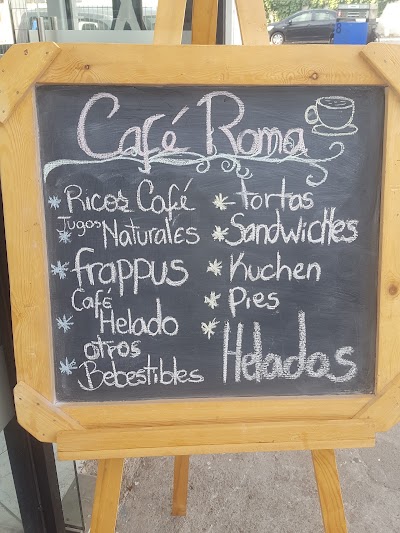 Café Roma
Ricos Café
Jugos Naturales
frappus
Café Helado
otros
Bebestibles
tortas
Sandwichles
Kuchen
Pies
Helados